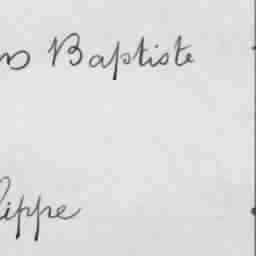 Baptiste
lippe